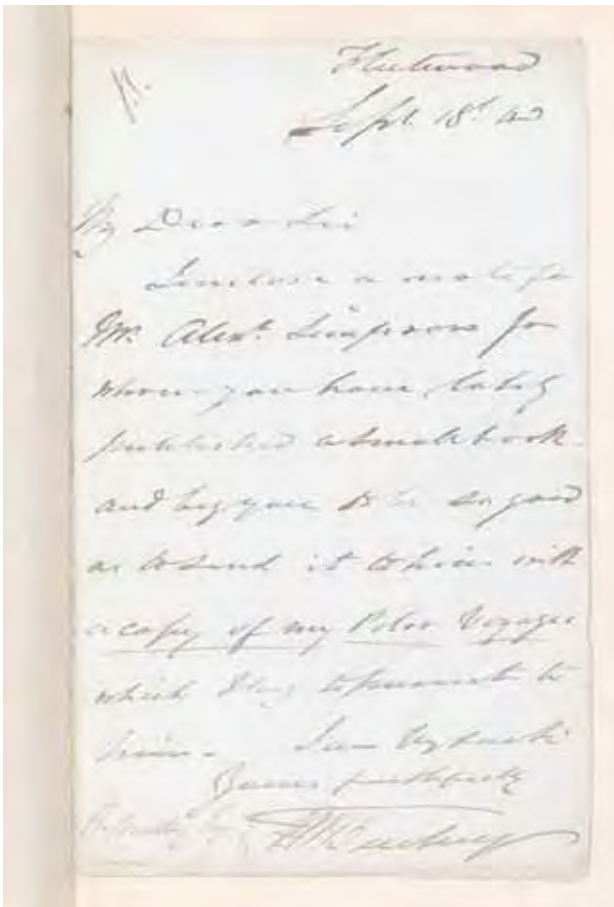 Fleetwood
Sept. 18th 43
My Dear Sir
I inclose a note for
Mr. Alexr. Simpson for
whom you have lately
published a small book
and beg you to be so good
as to send it to him with
a copy of my Polar Voyages
which I beg to present to
him. I am
Yours faithfully